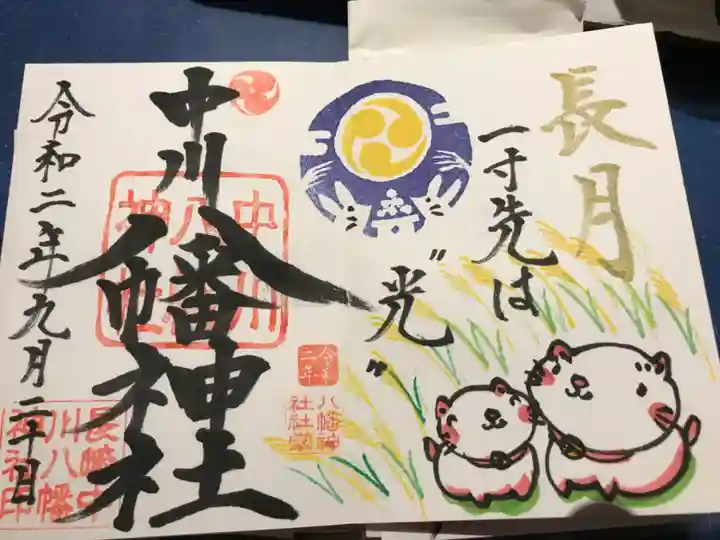 長月
一寸先は
"光"
中川八幡神社
中川
八幡
神社
令和二年九月二十日
令和
二年
八幡神
社社
長崎中
川八幡
神社印